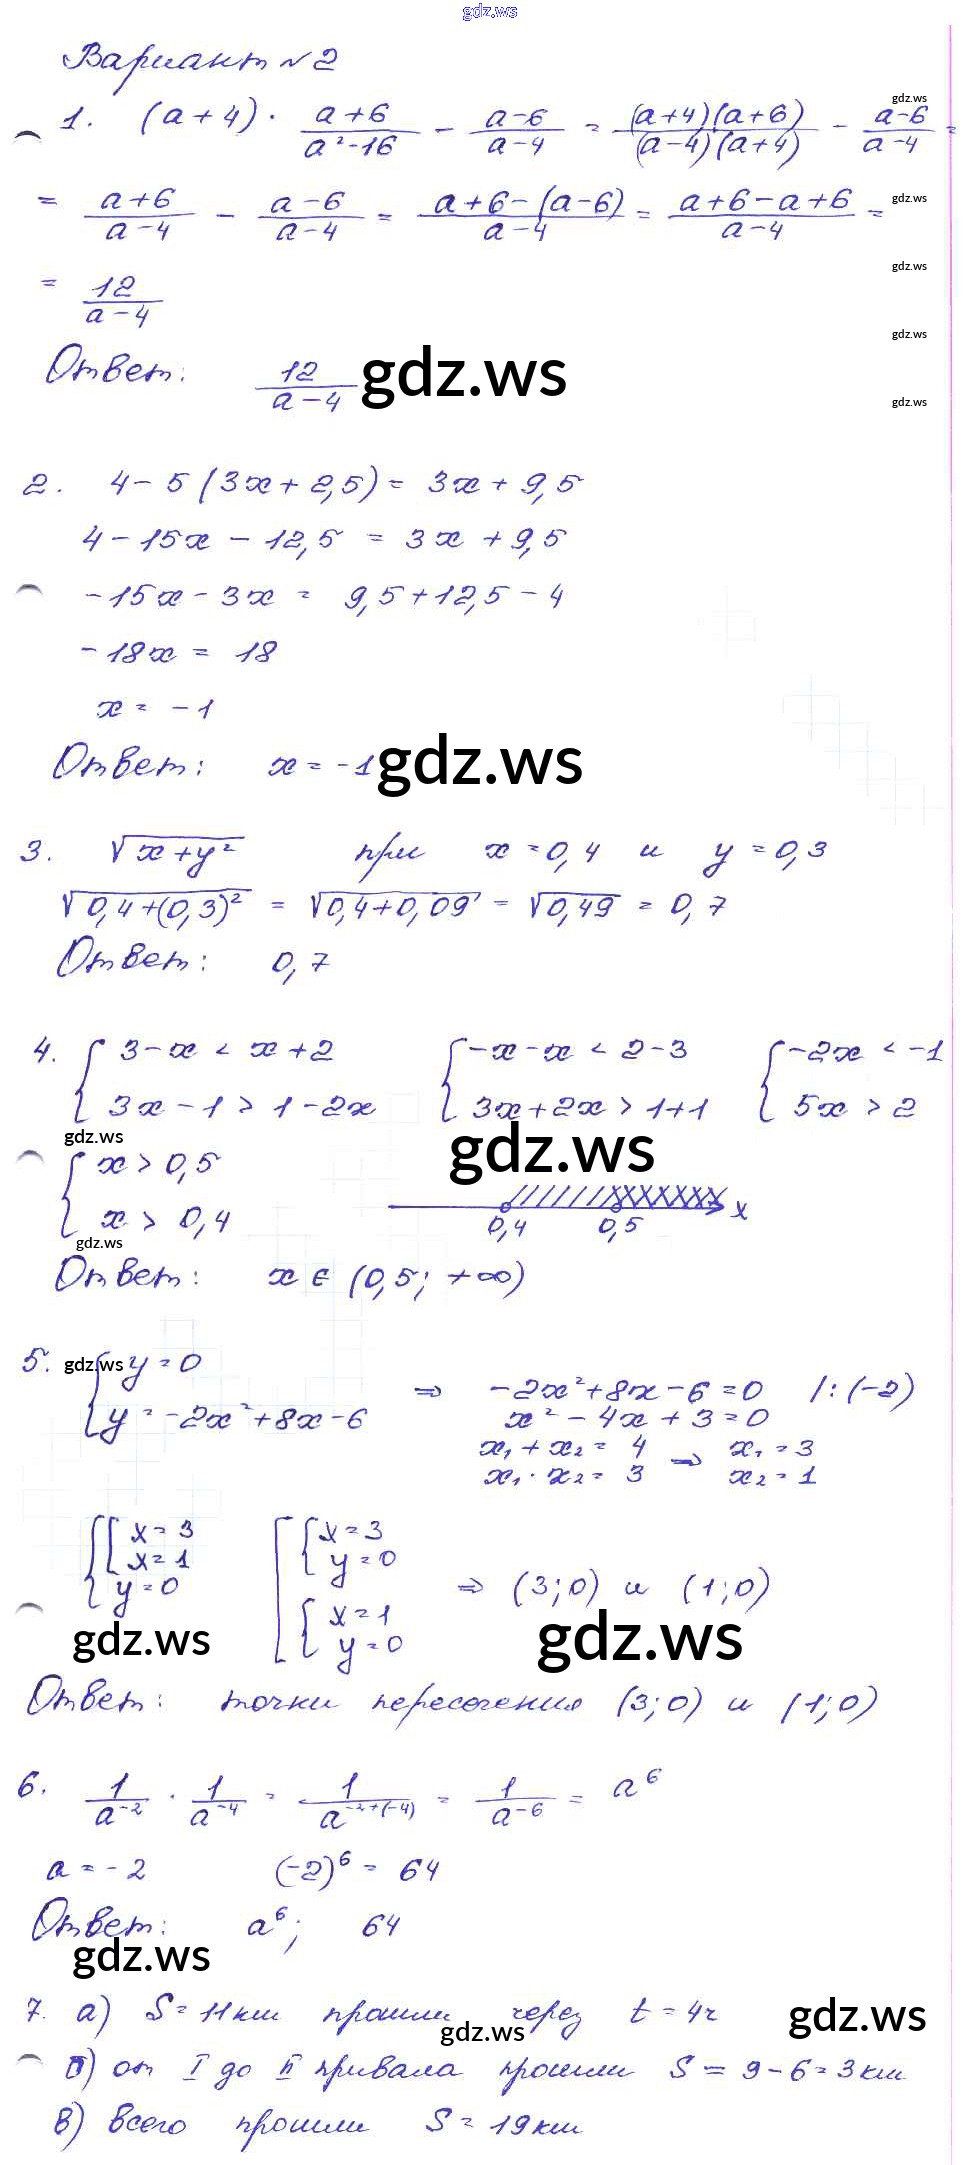 gdz.ws
Вариант №2
1. (a+4) · (a+6)/(a²-16) - (a-6)/(a-4) = ((a+4)(a+6))/((a-4)(a+4)) - (a-6)/(a-4) =
gdz.ws
= (a+6)/(a-4) - (a-6)/(a-4) = (a+6-(a-6))/(a-4) = (a+6-a+6)/(a-4) =
gdz.ws
gdz.ws
= 12/(a-4)
gdz.ws
Ответ: 12/(a-4)
gdz.ws
gdz.ws
2. 4-5(3x+2,5) = 3x+9,5
4-15x-12,5 = 3x+9,5
-15x-3x = 9,5+12,5-4
-18x = 18
x = -1
Ответ: x = -1
gdz.ws
3. √(x+y²) при x=0,4 и y=0,3
√(0,4+(0,3)²) = √(0,4+0,09) = √0,49 = 0,7
Ответ: 0,7
4. { 3-x < x+2 { -x-x < 2-3 { -2x < -1
3x-1 > 1-2x 3x+2x > 1+1 5x > 2
gdz.ws
gdz.ws
{ x > 0,5
x > 0,4
0,4 0,5 x
gdz.ws
Ответ: x ∈ (0,5; +∞)
5. { y=0
gdz.ws
y=-2x²+8x-6 ⇒ -2x²+8x-6=0 /:(-2)
x²-4x+3=0
x₁+x₂= 4 ⇒ x₁=3
x₁·x₂= 3 x₂=1
{ [ x=3 [ { x=3
x=1 y=0
y=0 ⇒ (3;0) и (1;0)
{ x=1
y=0
gdz.ws
gdz.ws
Ответ: точки пересечения (3;0) и (1;0)
6. 1/a⁻² · 1/a⁻⁴ = 1/a⁻²⁺⁽⁻⁴⁾ = 1/a⁻⁶ = a⁶
a=-2 (-2)⁶ = 64
Ответ: a⁶; 64
gdz.ws
7. а) S=11км прошли через t=4ч
gdz.ws
gdz.ws
б) от I до II привала прошли S=9-6=3км
в) всего прошли S=19км